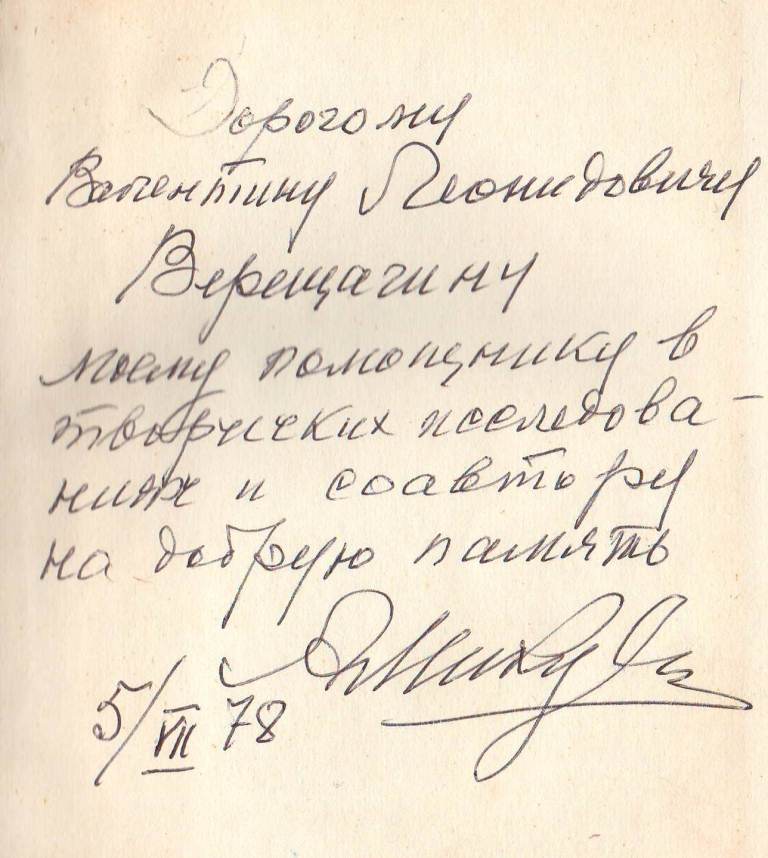 Дорогому
Валентину Леонидовичу
Верещагину
моему помощнику в
творческих исследова-
ниях и соавтору
на добрую память
5/VII 78